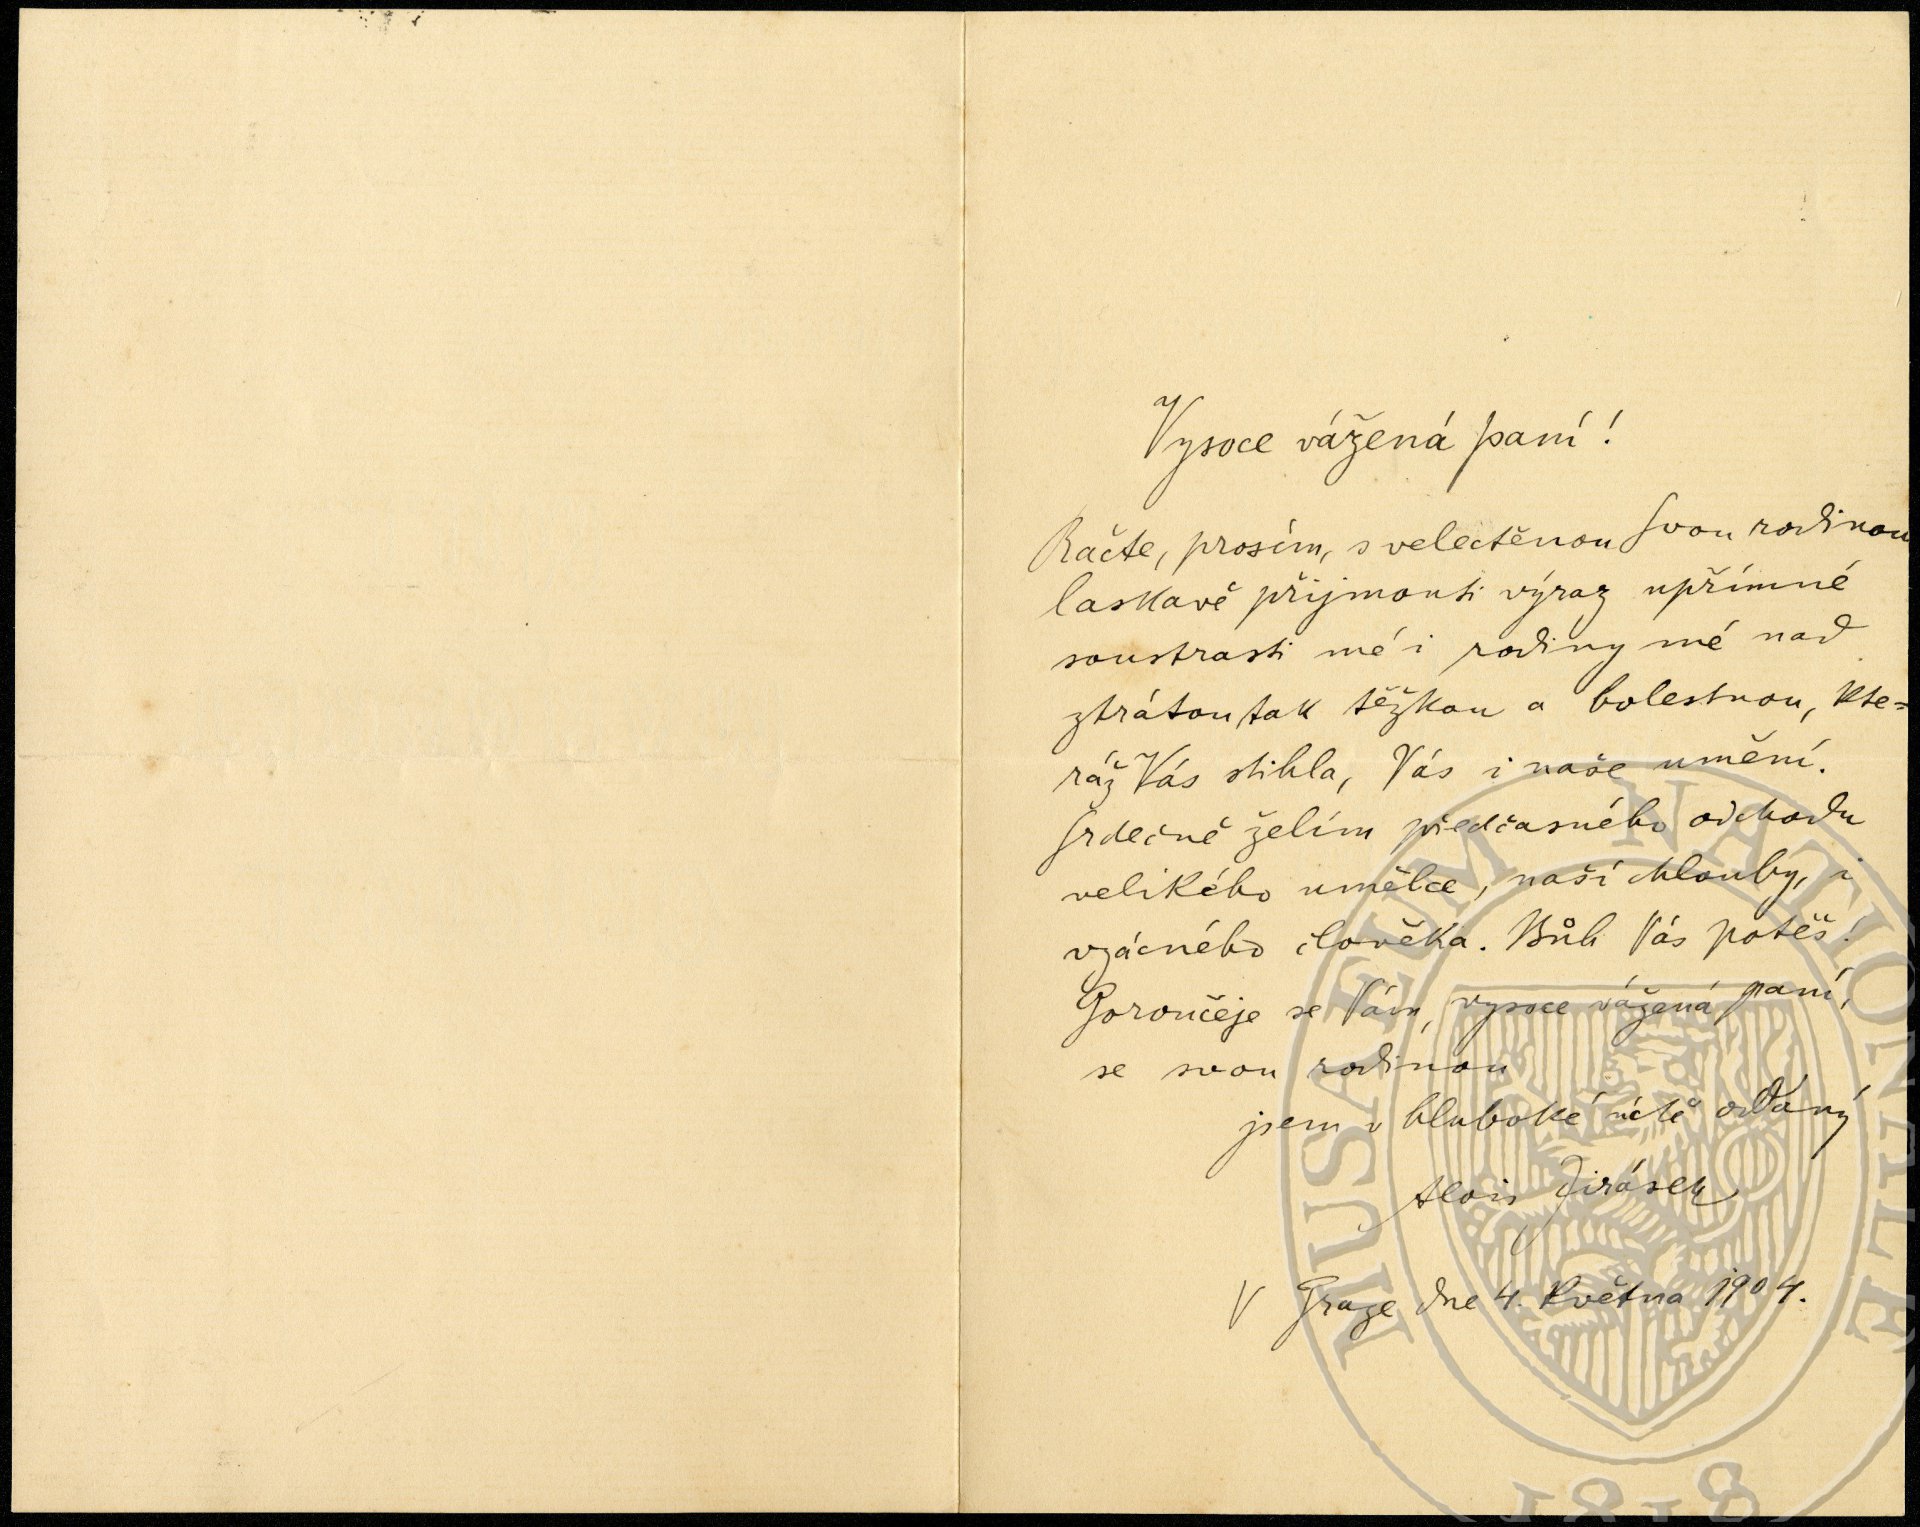 Vysoce vážená paní!
Račte, prosím, s velectěnou svou rodinou
laskavě přijmouti výraz upřímné
soustrasti mé i rodiny mé nad
ztrátou tak těžkou a bolestnou, kte=
ráž Vás stihla, Vás i naše umění.
Srdečně želím předčasného odchodu
velikého umělce, naší chlouby, i
vzácného člověka. Bůh Vás potěš!
Poroučeje se Vám, vysoce vážená paní,
se svou rodinou
jsem v hluboké úctě oddaný
Alois Jirásek
V Praze dne 4. května 1904.
MUSAEUM NATIONALE
1818